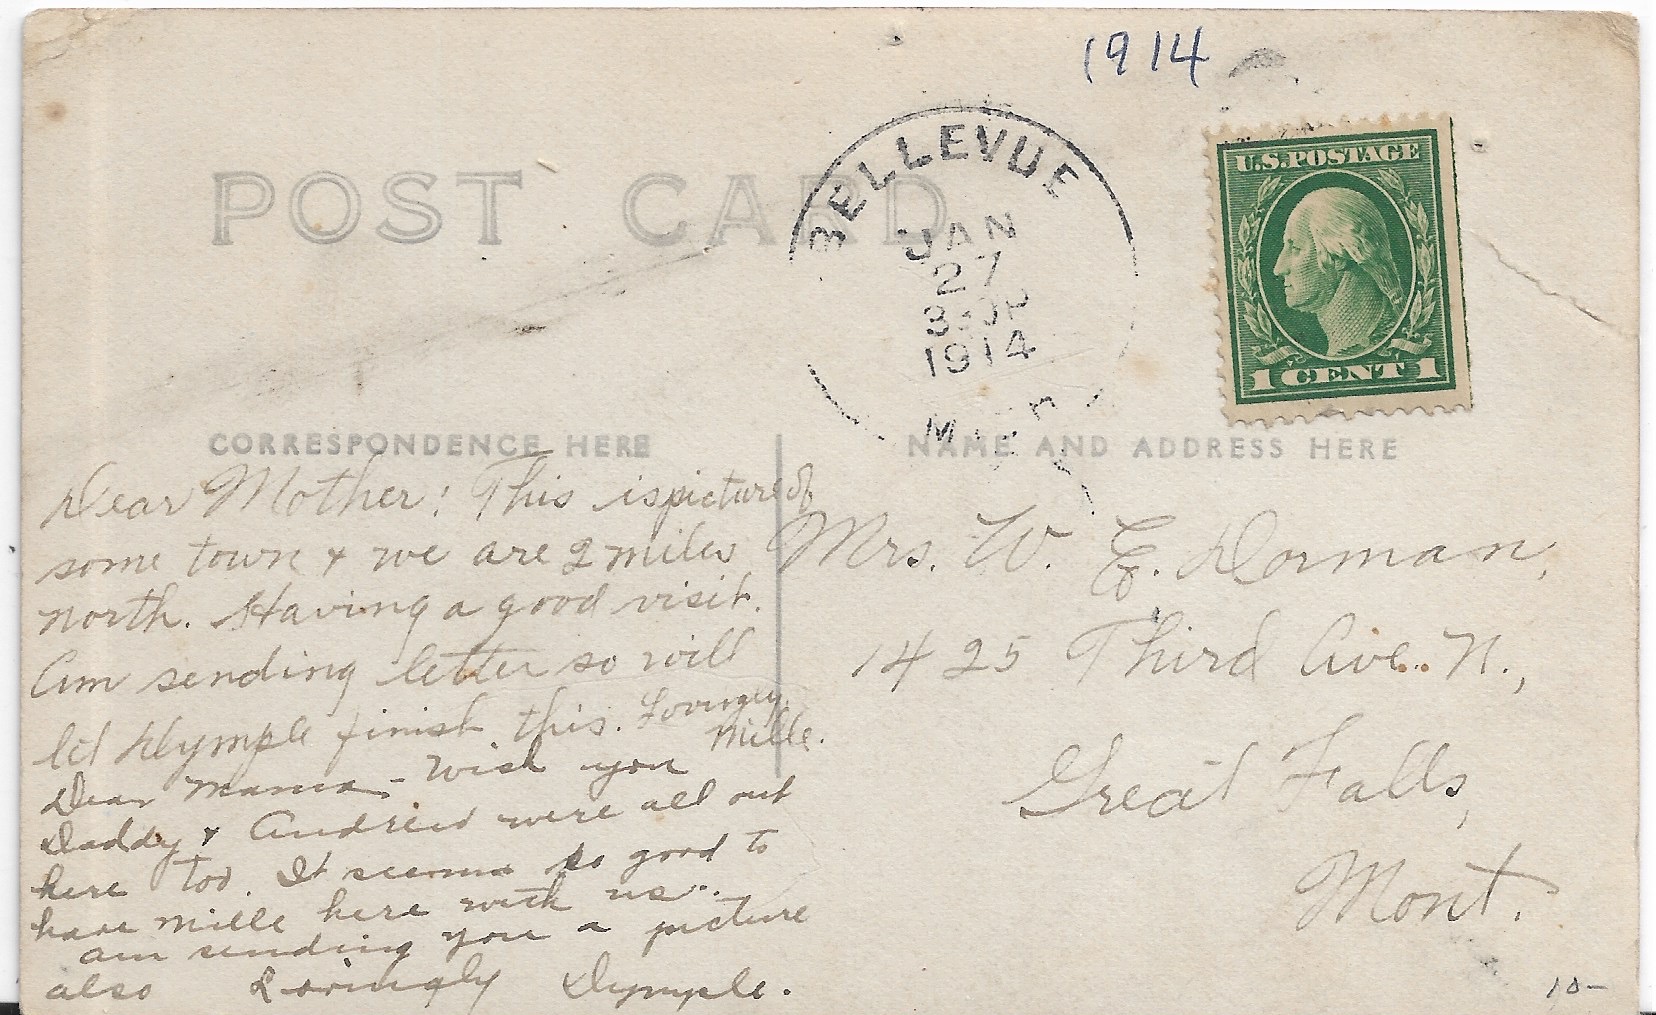 1914
POST CARD
BELLEVUE
JAN
27
1914
U.S.POSTAGE
1 CENT 1
CORRESPONDENCE HERE
NAME AND ADDRESS HERE
Dear Mother: This is picture of
some town & we are 2 miles
north. Having a good visit.
Am sending letter so will
let Dymple finish this. Lovingly
Mille.
Dear Mama - Wish you
Daddy & Andrew were all out
here too. It seems so good to
have Mille here with us..
am sending you a picture
also Lovingly Dymple.
Mrs. W. E. Dorman,
1425 Third Ave. N.,
Great Falls,
Mont.
10-